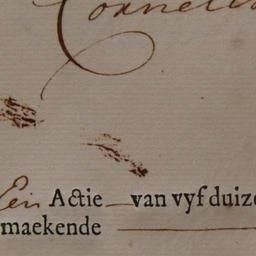 Cornelis
Een Actie van vyf duize
maekende